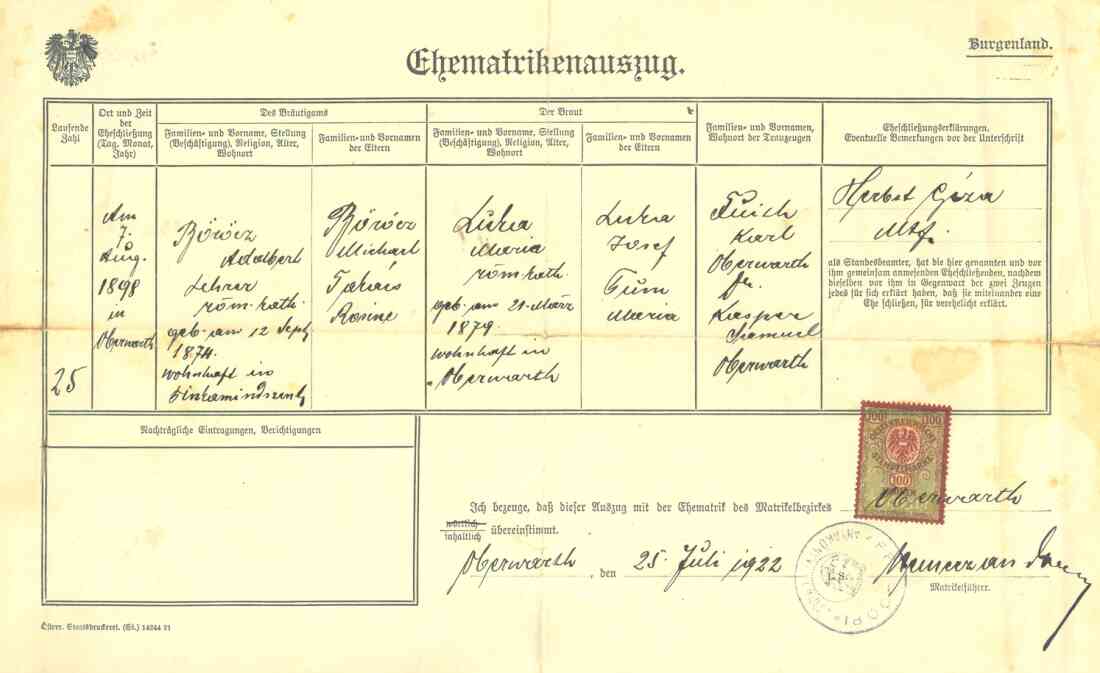 Burgenland.
Ehematrikenauszug.
Laufende
Zahl
Ort und Zeit
der
Eheschließung
(Tag, Monat,
Jahr)
Des Bräutigams
Familien- und Vorname, Stellung
(Beschäftigung), Religion, Alter,
Wohnort
Familien- und Vornamen
der Eltern
Der Braut
Familien- und Vorname, Stellung
(Beschäftigung), Religion, Alter,
Wohnort
Familien- und Vornamen
der Eltern
Familien- und Vornamen,
Wohnort der Trauzeugen
Eheschließungserklärungen.
Eventuelle Bemerkungen vor der Unterschrift
25
Am
7.
Aug.
1898
in
Oberwarth
Böröcz
Adalbert
Lehrer
röm kath.
geb. am 12 Sept.
1874.
wohnhaft in
Böröcz
Michael
Takács
Rosine
Luka
Maria
röm kath.
geb. am 21. März
1879.
wohnhaft in
Oberwarth
Luka
Josef
Maria
Karl
Oberwarth
Kasper
Samuel
Oberwarth
Herbst Géza
als Standesbeamter, hat die hier genannten und vor
ihm gemeinsam anwesenden Eheschließenden, nachdem
dieselben vor ihm in Gegenwart der zwei Zeugen
jedes für sich erklärt haben, daß sie miteinander eine
Ehe schließen, für verehelicht erklärt.
Nachträgliche Eintragungen, Berichtigungen
100 100
100
Ich bezeuge, daß dieser Auszug mit der Ehematrik des Matrikelbezirkes Oberwarth
wörtlich
inhaltlich übereinstimmt.
Oberwarth, den 25. Juli 1922
Matrikelführer.
Österr. Staatsdruckerei. (St.) 14244 21